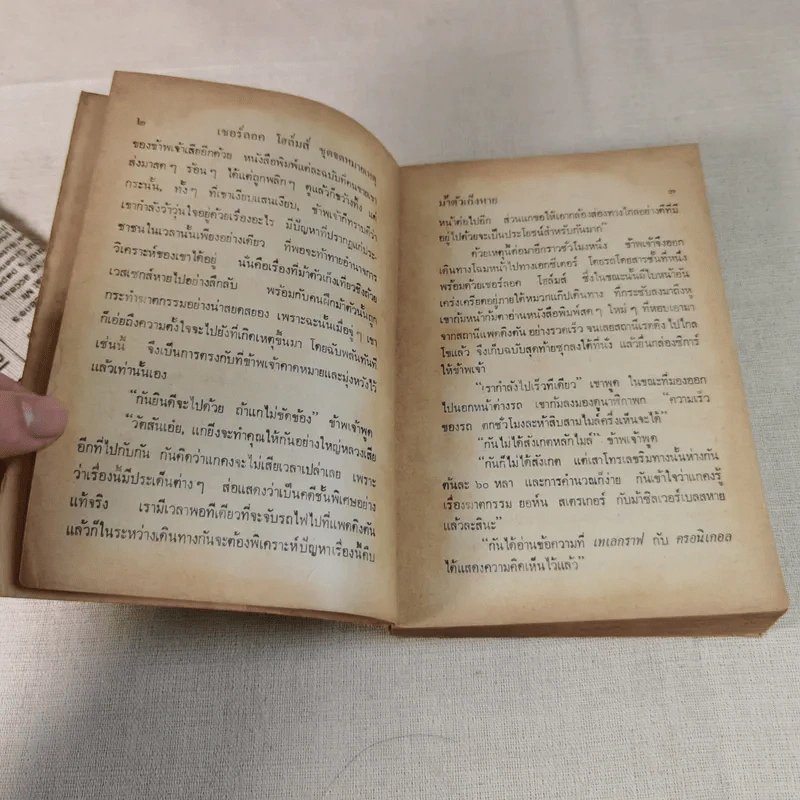 ๒
เชอร์ลอค โฮล์มส์ ชุดจดหมายเหตุ
ของข้าพเจ้าเสียอีกด้วย หนังสือพิมพ์แต่ละฉบับที่คนขายเขา
ส่งมาสดๆ ร้อนๆ ได้แต่ถูกพลิกๆ ดูแล้วก็ขว้างทิ้ง แต่
กระนั้น, ทั้งๆ ที่เขาเงียบแสนเงียบ, ข้าพเจ้าก็ทราบดีว่า
เขากำลังว้าวุ่นใจอยู่ด้วยเรื่องอะไร มีปัญหาที่ปรากฏแก่ประ-
ชาชนในเวลานั้นเพียงอย่างเดียว ที่พอจะท้าทายอำนาจการ
วิเคราะห์ของเขาได้อยู่ นั่นคือเรื่องที่ม้าตัวเก็งเที่ยวชิงถ้วย
เวสเซกส์หายไปอย่างลึกลับ พร้อมกับคนฝึกม้าตัวนั้นถูก
กระทำฆาตกรรมอย่างน่าสยดสยอง เพราะฉะนั้นเมื่อจู่ๆ เขา
ก็เอ่ยถึงความตั้งใจจะไปยังที่เกิดเหตุขึ้นมา โดยฉับพลันทันที
เช่นนี้ จึงเป็นการตรงกับที่ข้าพเจ้าคาดหมายและมุ่งหวังไว้
แล้วเท่านั้นเอง
“กันยินดีจะไปด้วย ถ้าแกไม่ขัดข้อง” ข้าพเจ้าพูด
“วัตสันเอ๋ย, แกยิ่งจะทำคุณให้กันอย่างใหญ่หลวงเสีย
อีกที่ไปกับกัน กันคิดว่าแกคงจะไม่เสียเวลาเปล่าเลย เพราะ
ว่าเรื่องนี้มีประเด็นต่างๆ ส่อแสดงว่าเป็นคดีชั้นพิเศษอย่าง
แท้จริง เรามีเวลาพอทีเดียวที่จะจับรถไฟไปที่แพดดิงตัน
แล้วก็ในระหว่างเดินทางกันจะต้องพิเคราะห์ปัญหาเรื่องนี้คืบ
ม้าตัวเก็งหาย
๓
หน้าต่อไปอีก ส่วนแกขอให้เอากล้องส่องทางไกลอย่างดีที่มี
อยู่ไปด้วยจะเป็นประโยชน์สำหรับกันมาก”
ด้วยเหตุนี้ต่อมาอีกราวชั่วโมงหนึ่ง ข้าพเจ้าจึงออก
เดินทางโฉมหน้าไปทางเอกซีเตอร์ โดยรถโดยสารชั้นที่หนึ่ง
พร้อมด้วยเชอร์ลอค โฮล์มส์ ซึ่งในขณะนั้นมีใบหน้าอัน
เคร่งเครียดอยู่ภายใต้หมวกแก๊ปเดินทาง ที่กระชับลงมาถึงหู
เขาก้มหน้าก้มตาอ่านหนังสือพิมพ์สดๆ ใหม่ๆ ที่หอบเอามา
จากสถานีแพดดิงตัน อย่างรวดเร็ว จนเลยสถานีเรดดิง ไปไกล
โขแล้ว จึงเก็บฉบับสุดท้ายซุกลงใต้ที่นั่ง แล้วยื่นกล่องซิการ์
ให้ข้าพเจ้า
“เรากำลังไปเร็วทีเดียว” เขาพูด ในขณะที่มองออก
ไปนอกหน้าต่างรถ เขาก้มลงมองดูนาฬิกาพก “ความเร็ว
ของรถ ตกชั่วโมงละห้าสิบสามไมล์ครึ่งเห็นจะได้”
“กันไม่ได้สังเกตหลักไมล์” ข้าพเจ้าพูด
“กันก็ไม่ได้สังเกต แต่เสาโทรเลขริมทางนั้นห่างกัน
ต้นละ ๖๐ หลา และการคำนวณก็ง่าย กันเข้าใจว่าแกคงรู้
เรื่องฆาตกรรม ยอห์น สเตรเกอร์ กับม้าซิลเวอร์เบลสหาย
แล้วละสินะ”
“กันได้อ่านข้อความที่ เทเลกราฟ กับ ครอนิเกอล
ได้แสดงความคิดเห็นไว้แล้ว”